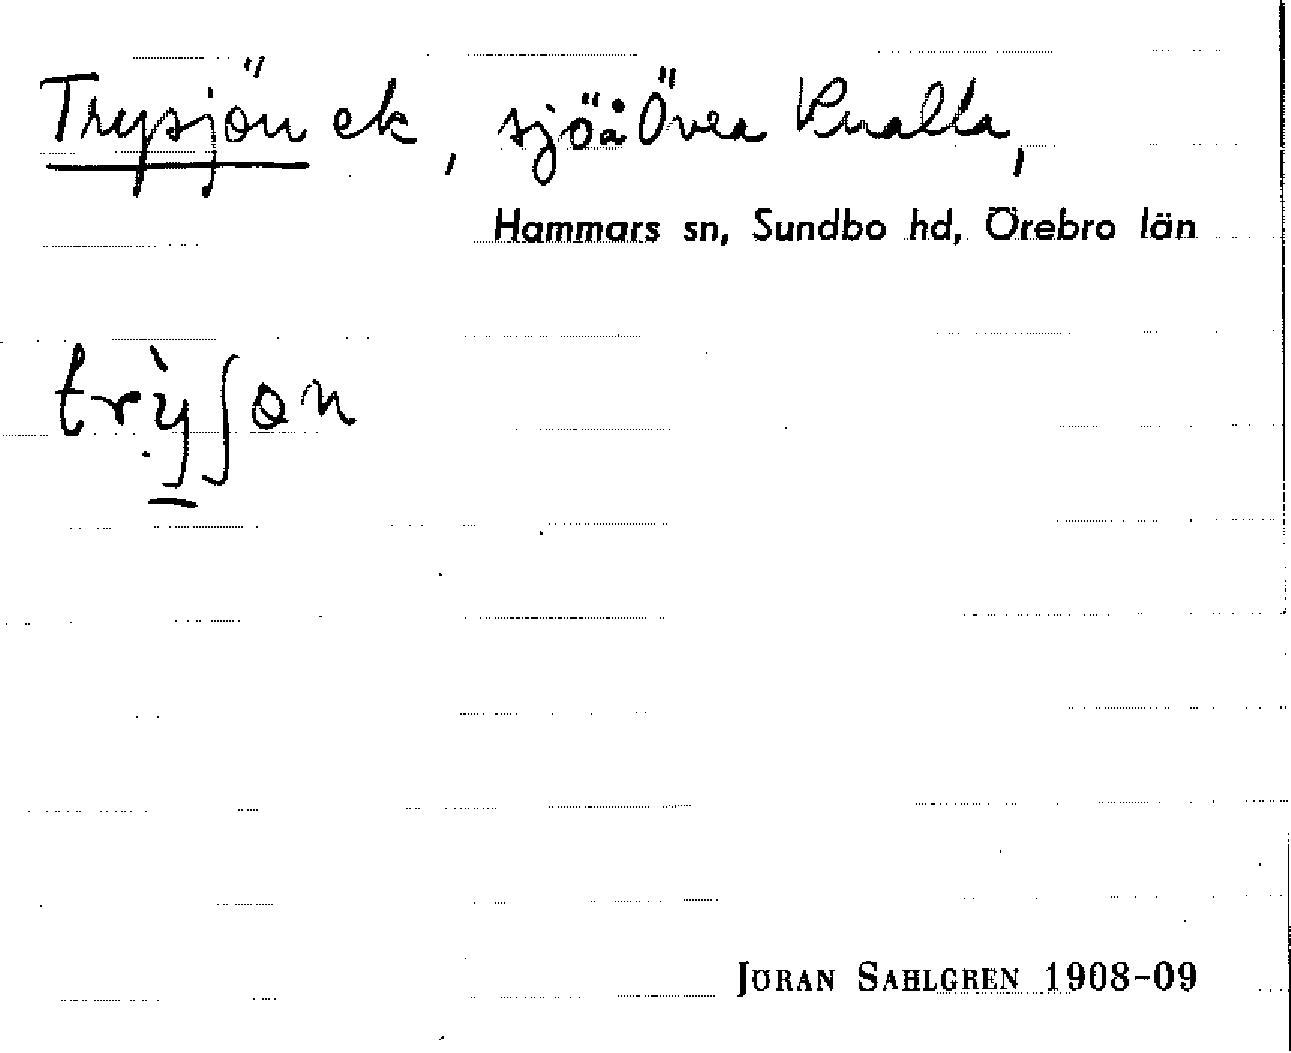 Trysjön ek, sjö å Övra Kvalla,
Hammars sn, Sundbo hd, Örebro län
trỳʃøn
JÖRAN SAHLGREN 1908-09